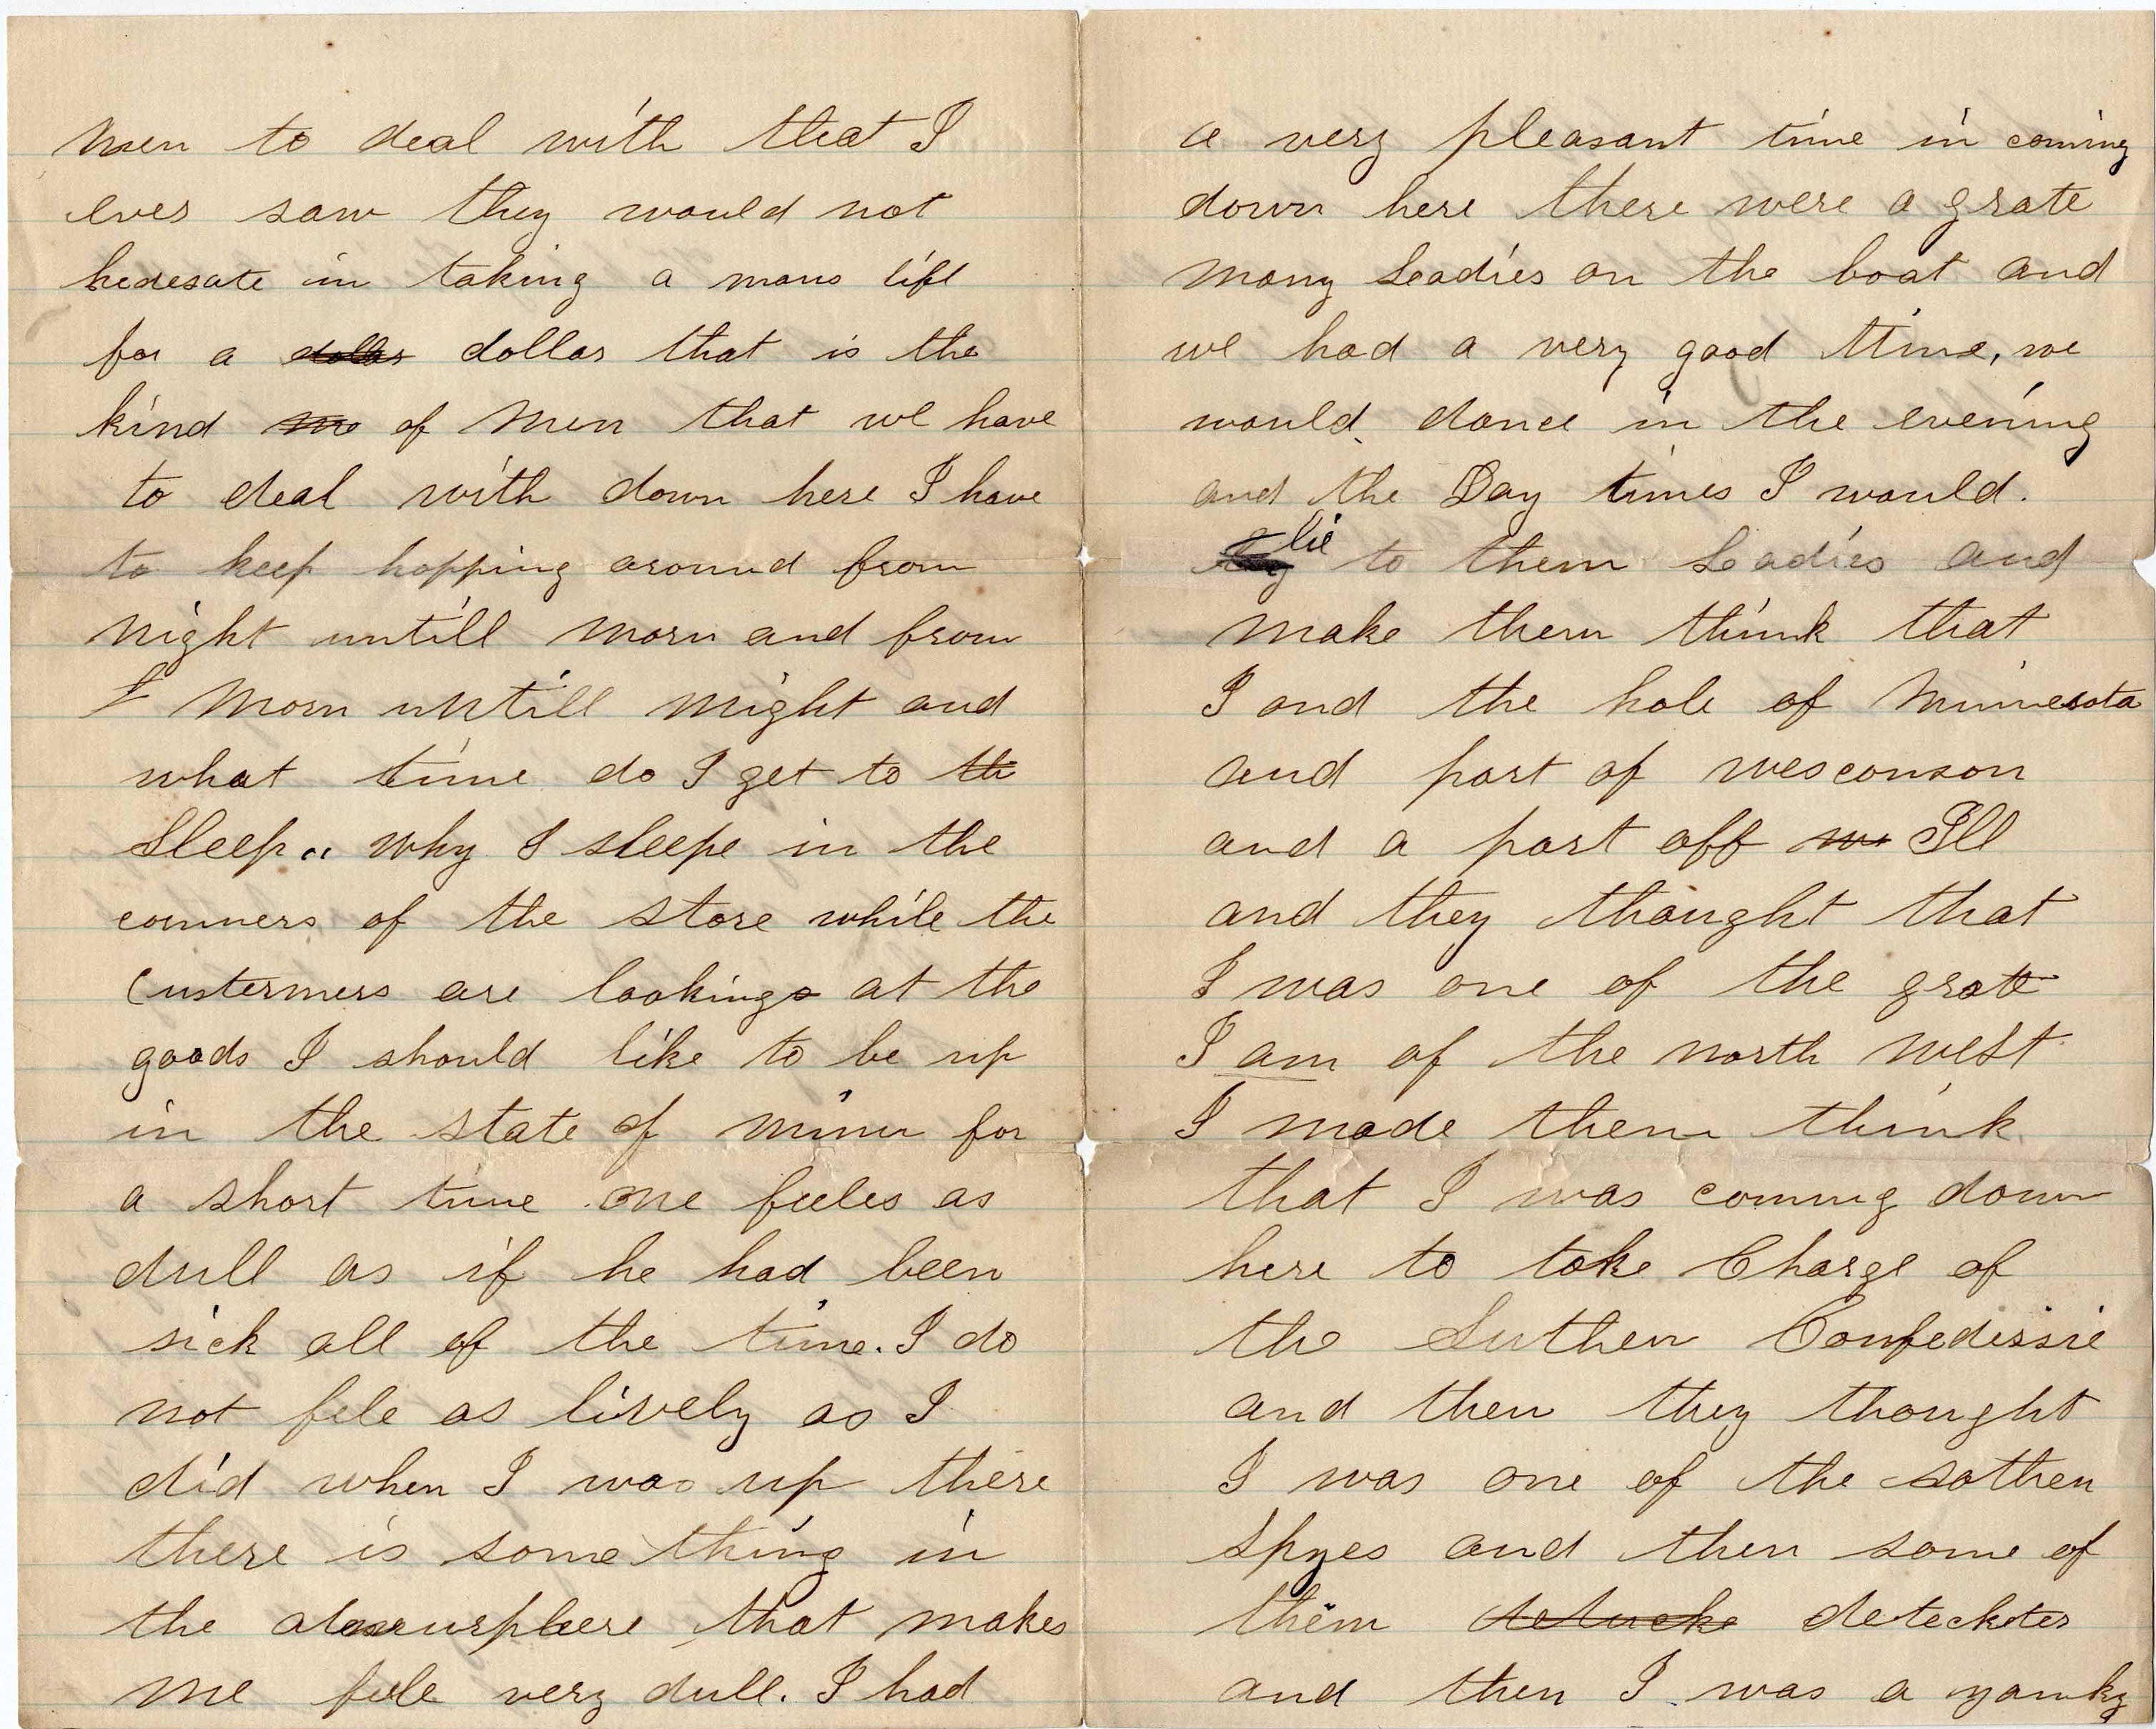 men to deal with that I
ever saw they would not
hedesate in taking a mans life
for a dollar dollar that is the
kind mo of Men that we have
to deal with down here I have
to keep hopping around from
night untill morn and from
Morn untill Night and
what time do I get to th
Sleep.. why I sleepe in the
conners of the store while the
Custermers are lookings at the
goods I should like to be up
in the state of minn for
a short time one feeles as
dull as if he had been
sick all of the time. I do
not fele as lively as I
did when I was up there
there is some thing in
the atmursphere that makes
me fele very dull. I had
a very pleasant time in coming
down here there were a grate
many Leadies on the boat and
we had a very good time, we
would dance in the evening
and the Day times I would.
lie to them Leadies and
make them think that
I and the hole of Minnesota
and part of wesconson
and a part off Ill
and they thought that
I was one of the grate
I am of the north west
I made them think
that I was coming down
here to take Charge of
the Suthen Confedissie
and then they thought
I was one of the sothen
Spyes and then some of
them detucke deteckter
and then I was a yanky